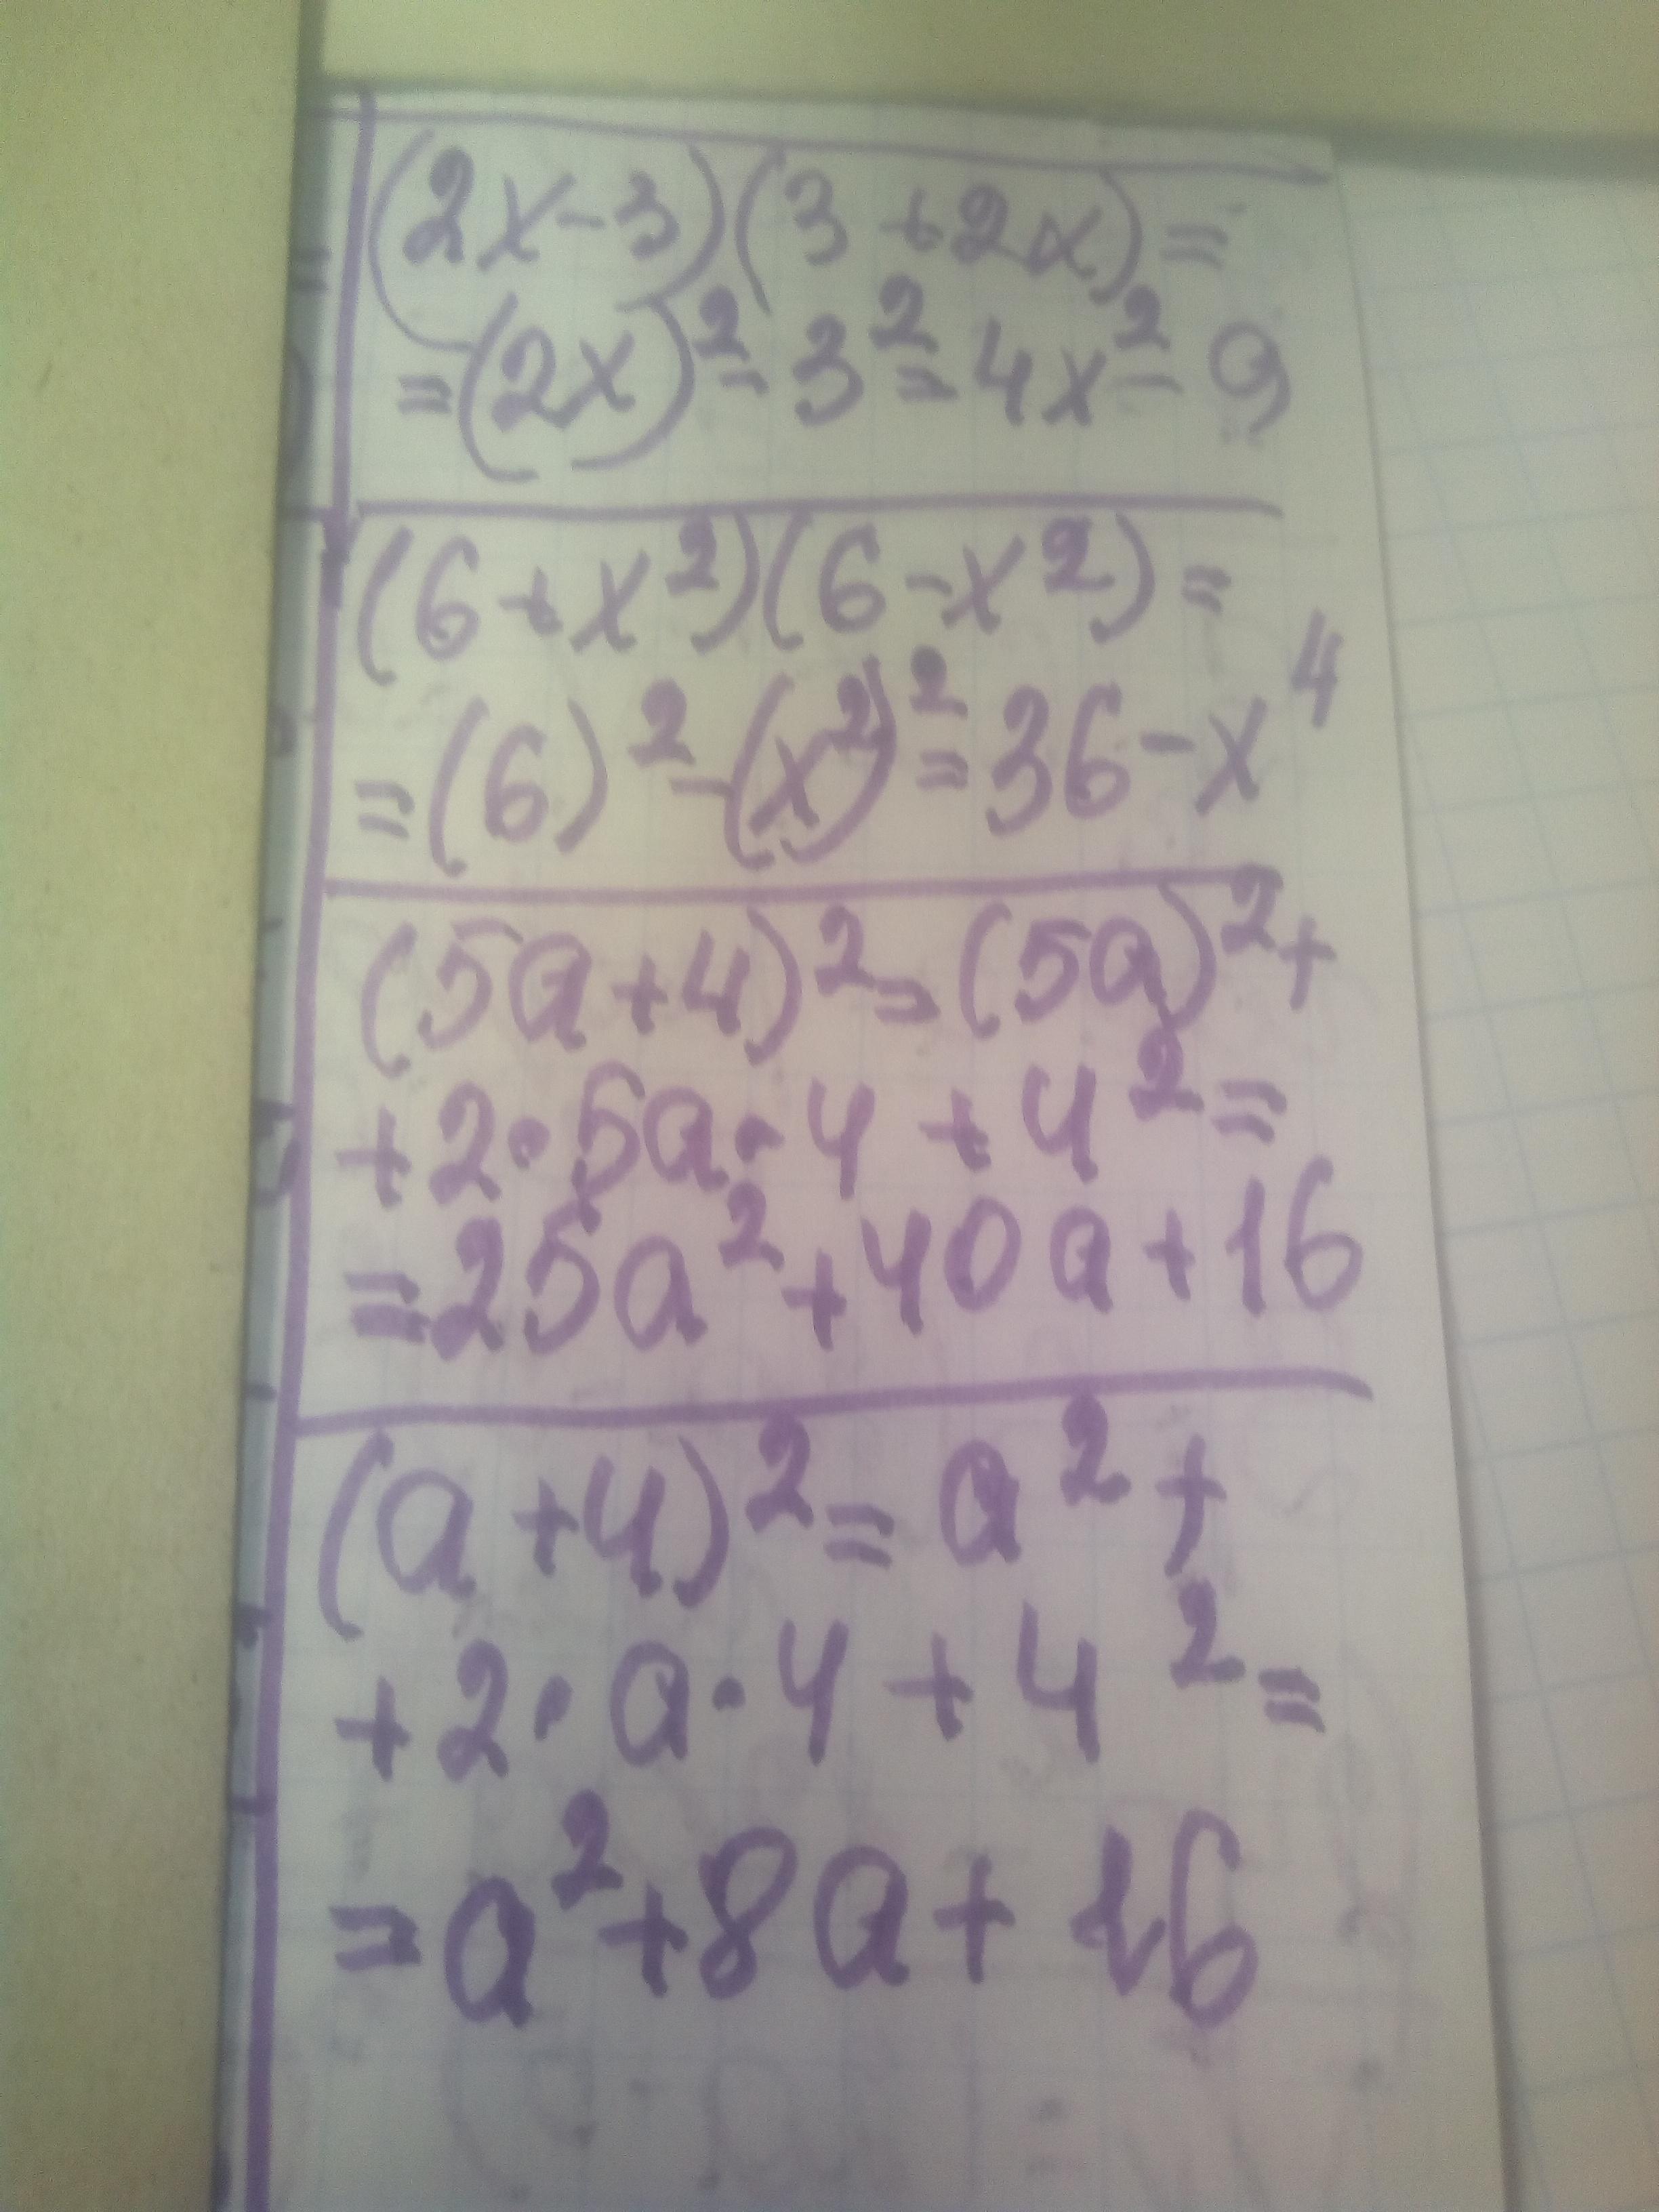 (2x-3)(3+2x)=
=(2x)²-3²=4x²-9
(6+x²)(6-x²)=
=(6)²-(x²)²=36-x⁴
(5a+4)²=(5a)²+
+2·5a·4+4²=
=25a²+40a+16
(a+4)²=a²+
+2·a·4+4²=
=a²+8a+16